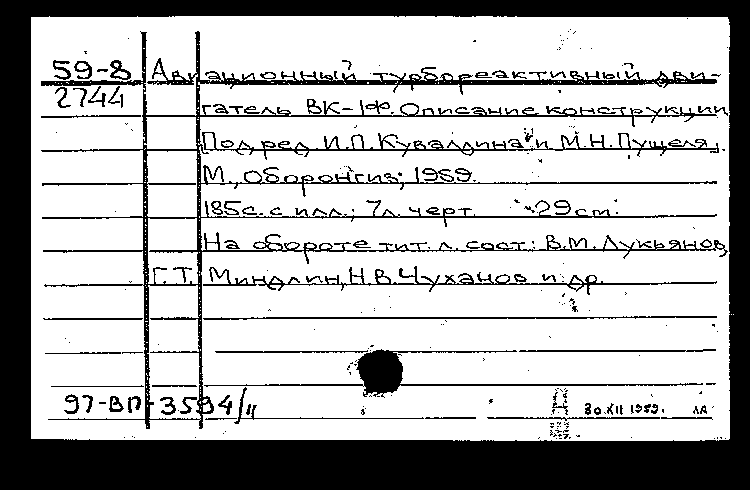 59-8 Авиационный турбореактивный дви-
2744 гатель ВК-1Ф. Описание конструкции
[Под ред. И.П. Кувалдина и М.Н. Пущеля].
М., Оборонгиз, 1959.
185с. с илл.; 7л. черт. 29см.
На обороте тит. л. сост: В.М. Лукьянов,
Г.Т. Миндлин, Н.В. Чуханов и др.
97-ВП-3594/н 30.XII 1959.